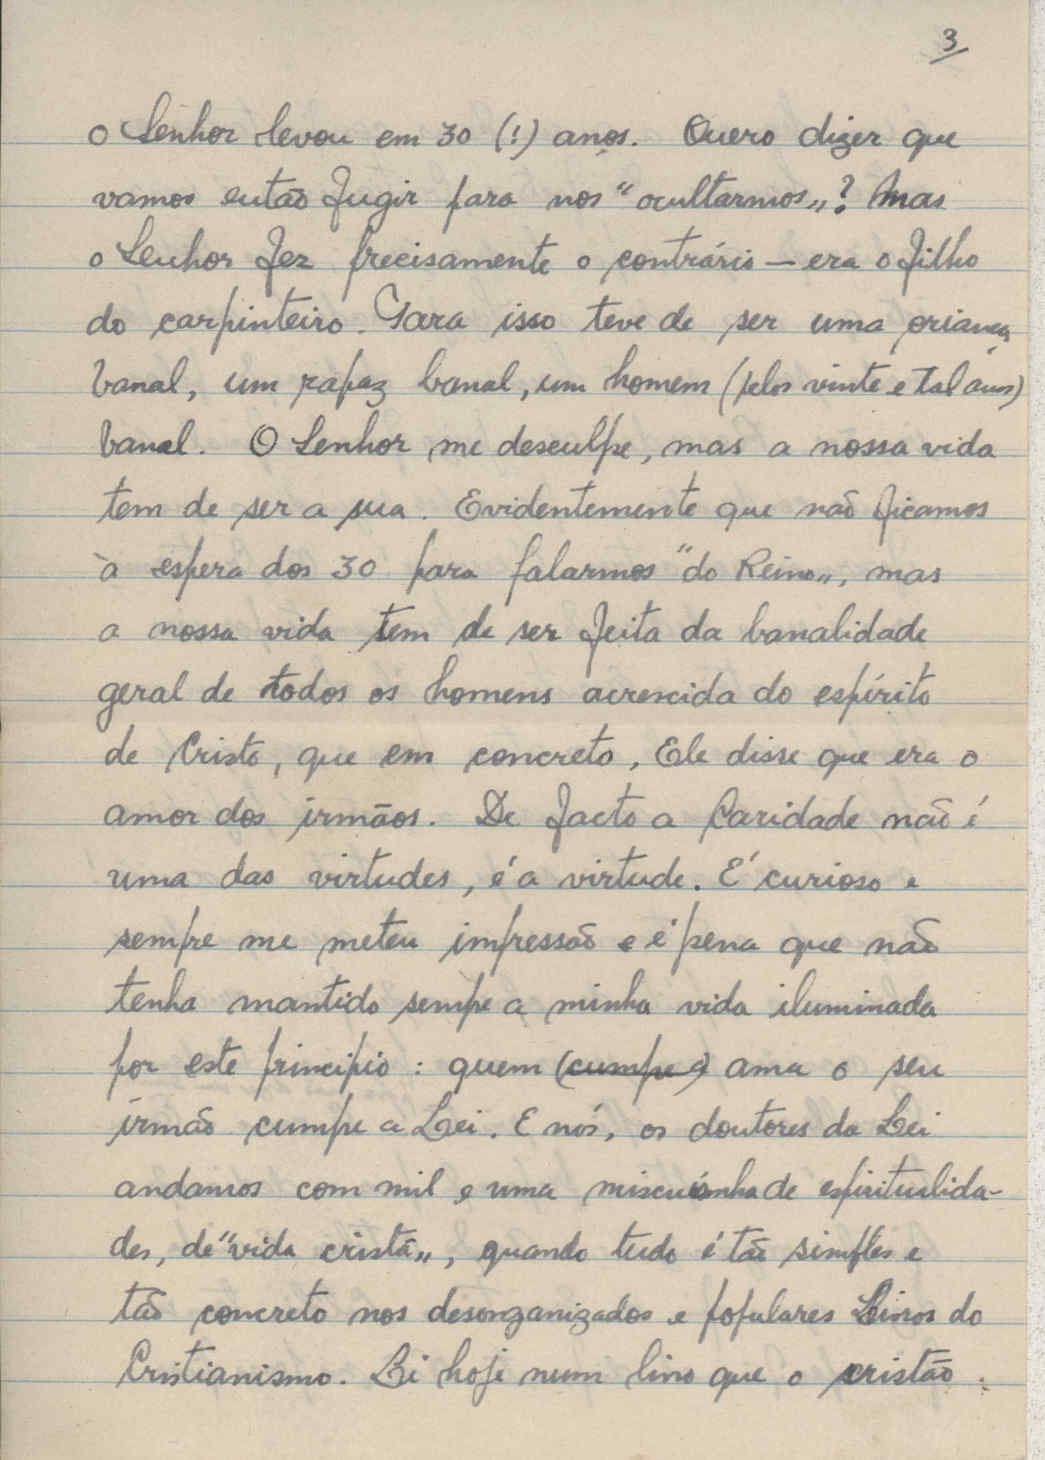 3
o Senhor levou em 30 (!) anos. Quero dizer que
vamos então fugir para nos "ocultarmos„? Mas
o Senhor fez precisamente o contrário — era o filho
do carpinteiro. Para isso teve de ser uma criança
banal, um rapaz banal, um homem (pelos vinte e tal anos)
banal. O Senhor me desculpe, mas a nossa vida
tem de ser a sua. Evidentemente que não ficamos
à espera dos 30 para falarmos "do Reino„, mas
a nossa vida tem de ser feita da banalidade
geral de todos os homens acrescida do espírito
de Cristo, que em concreto, Ele disse que era o
amor dos irmãos. De facto a Caridade não é
uma das virtudes, é a virtude. É curioso e
sempre me meteu impressão e é pena que não
tenha mantido sempe a minha vida iluminada
por este principio : quem (cumpe a) ama o seu
irmão cumpe a Lei. E nós, os doutores da Lei
andamos com mil e uma de espiritulida-
des, de "vida cristã„, quando tudo é tão simples e
tão concreto nos desorganizados e populares Livros do
Cristianismo. Li hoje num livro que o cristão